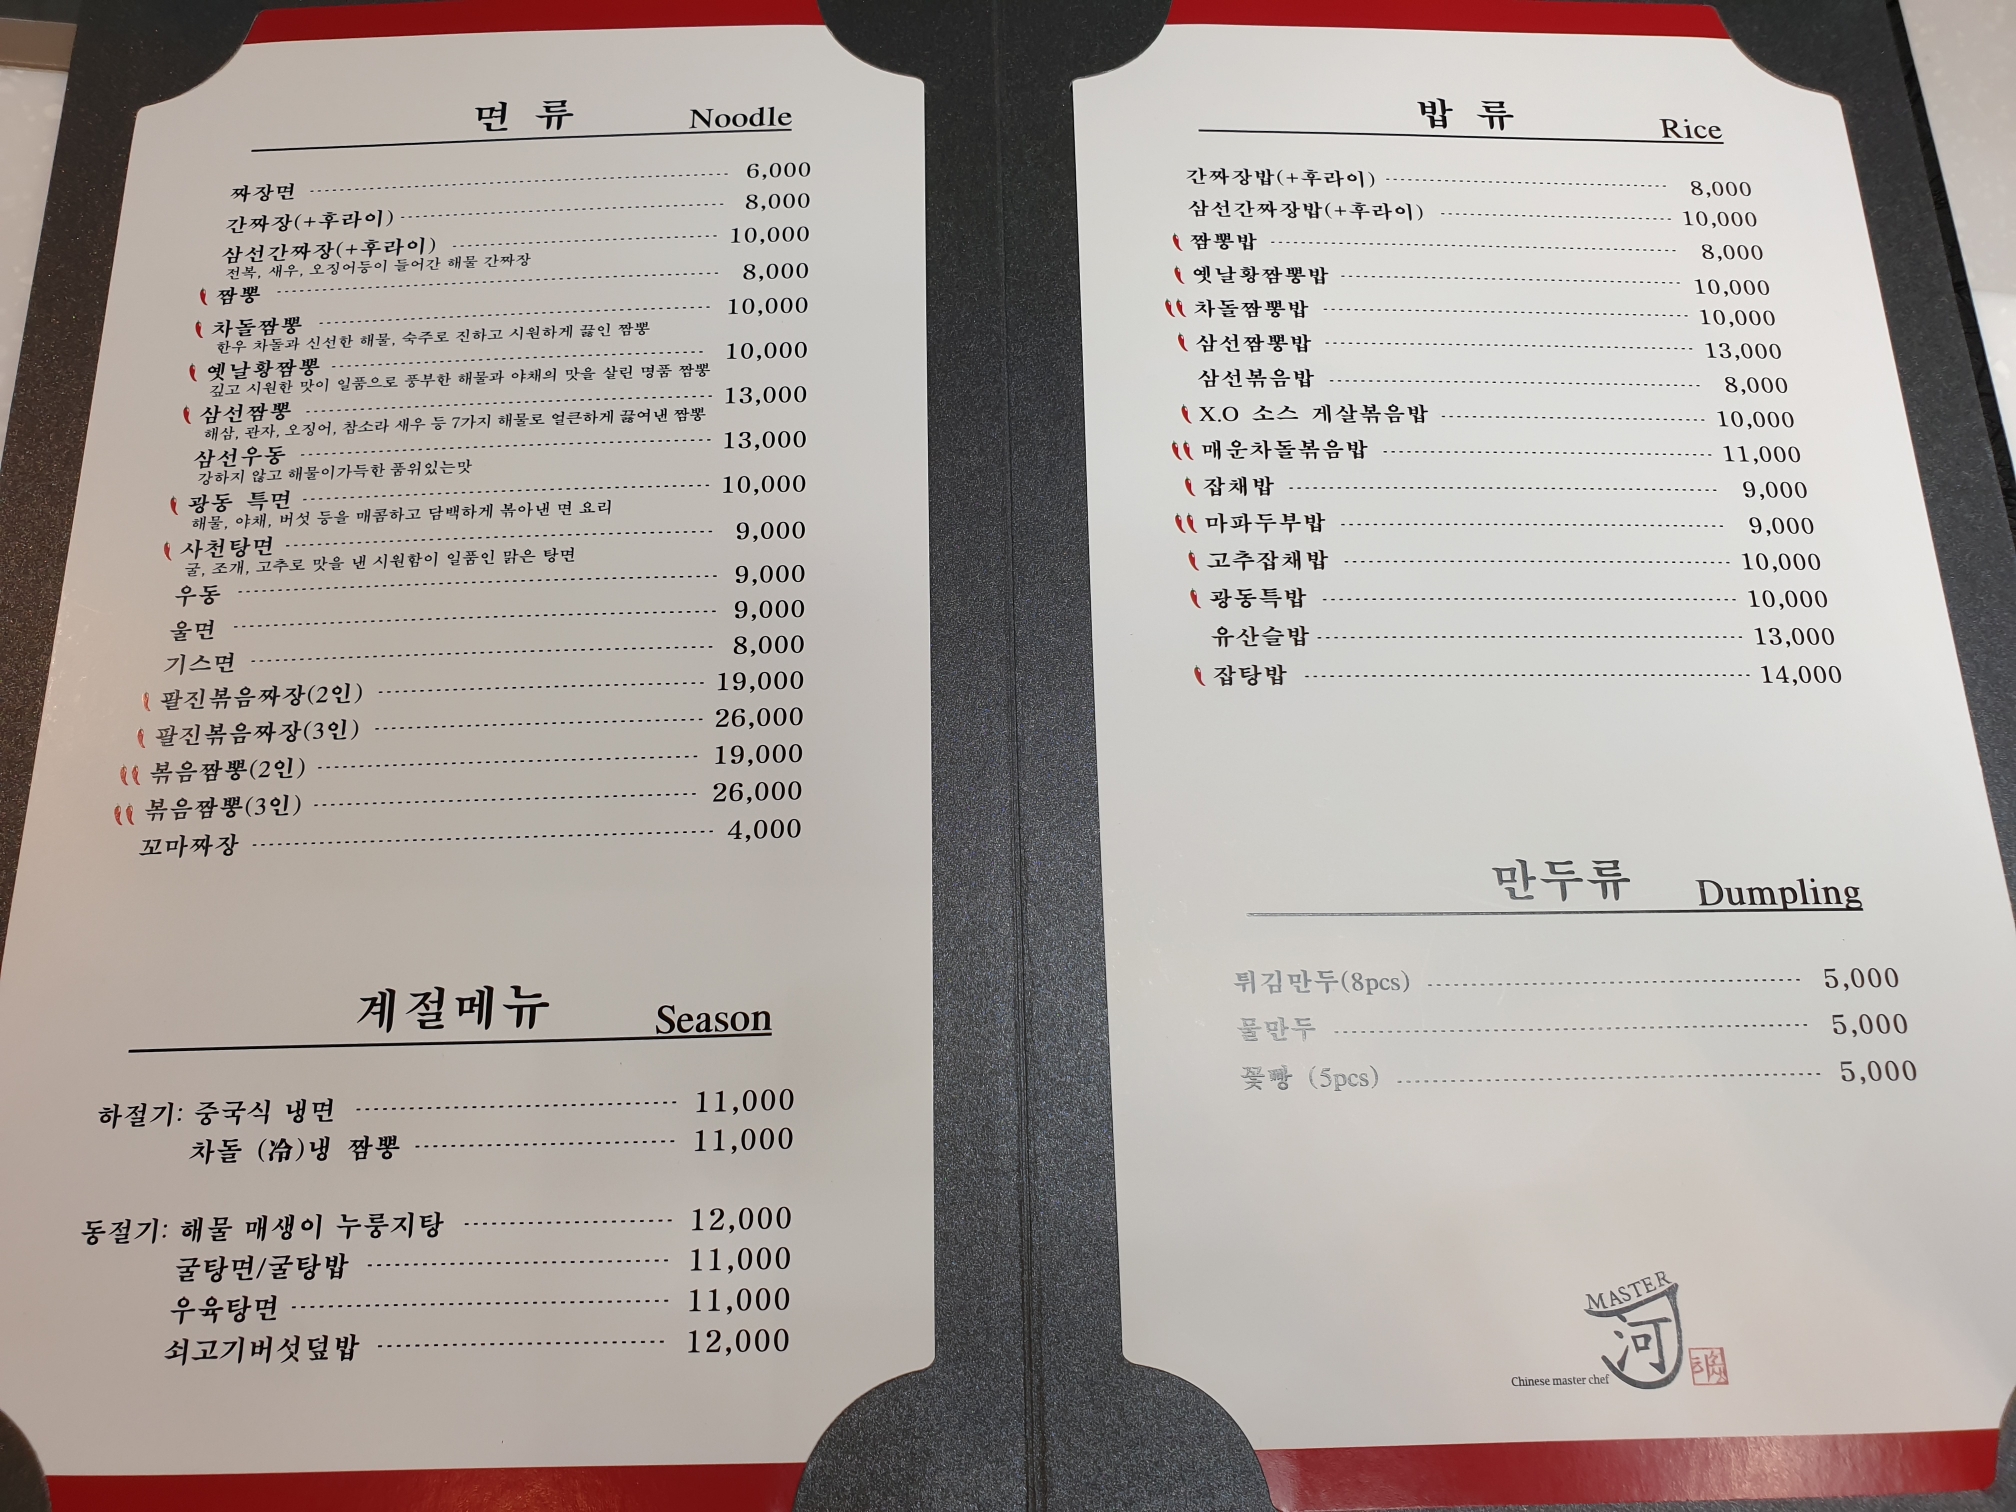 면 류 Noodle
짜장면 6,000
간짜장(+후라이) 8,000
삼선간짜장(+후라이) 10,000
전복, 새우, 오징어등이 들어간 해물 간짜장
짬뽕 8,000
차돌짬뽕 10,000
한우 차돌과 신선한 해물, 숙주로 진하고 시원하게 끓인 짬뽕
옛날황짬뽕 10,000
깊고 시원한 맛이 일품으로 풍부한 해물과 야채의 맛을 살린 명품 짬뽕
삼선짬뽕 13,000
해삼, 관자, 오징어, 참소라 새우 등 7가지 해물로 얼큰하게 끓여낸 짬뽕
삼선우동 13,000
강하지 않고 해물이가득한 품위있는맛
광동 특면 10,000
해물, 야채, 버섯 등을 매콤하고 담백하게 볶아낸 면 요리
사천탕면 9,000
굴, 조개, 고추로 맛을 낸 시원함이 일품인 맑은 탕면
우동 9,000
울면 9,000
기스면 8,000
팔진볶음짜장(2인) 19,000
팔진볶음짜장(3인) 26,000
볶음짬뽕(2인) 19,000
볶음짬뽕(3인) 26,000
꼬마짜장 4,000
계절메뉴 Season
하절기: 중국식 냉면 11,000
차돌 (冷)냉 짬뽕 11,000
동절기: 해물 매생이 누룽지탕 12,000
굴탕면/굴탕밥 11,000
우육탕면 11,000
쇠고기버섯덮밥 12,000
밥 류 Rice
간짜장밥(+후라이) 8,000
삼선간짜장밥(+후라이) 10,000
짬뽕밥 8,000
옛날황짬뽕밥 10,000
차돌짬뽕밥 10,000
삼선짬뽕밥 13,000
삼선볶음밥 8,000
X.O 소스 게살볶음밥 10,000
매운차돌볶음밥 11,000
잡채밥 9,000
마파두부밥 9,000
고추잡채밥 10,000
광동특밥 10,000
유산슬밥 13,000
잡탕밥 14,000
만두류 Dumpling
튀김만두(8pcs) 5,000
물만두 5,000
꽃빵 (5pcs) 5,000
MASTER
河
Chinese master chef